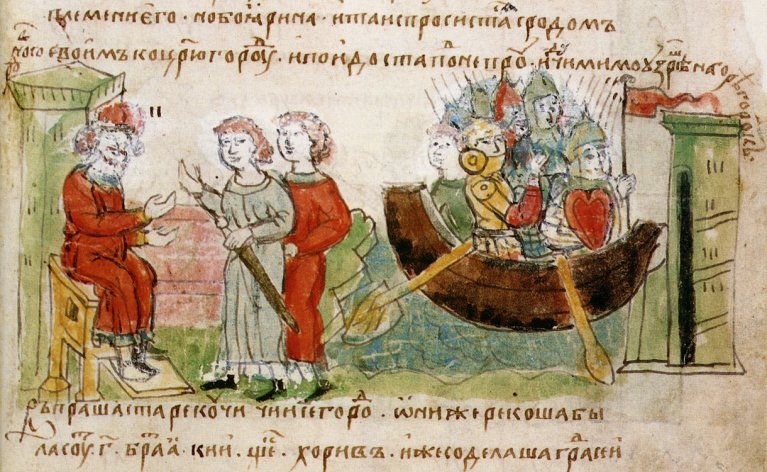 племени єго · но боꙗрина · и та испросистаⷭ҇ с родомъ
своимъ ко цр҃югородꙋ · и поидоста по непрꙋ · и идꙋчи мимо узрѣⷭ҇ на горѣ городокъ
въпрашаста рекочи чии се гороⷣ · ѡни же рекоша бы
ла соуⷮ · г҃ · браⷮꙗ · кии · щеⷦ · хоривъ · иже соделаша граⷣ сии